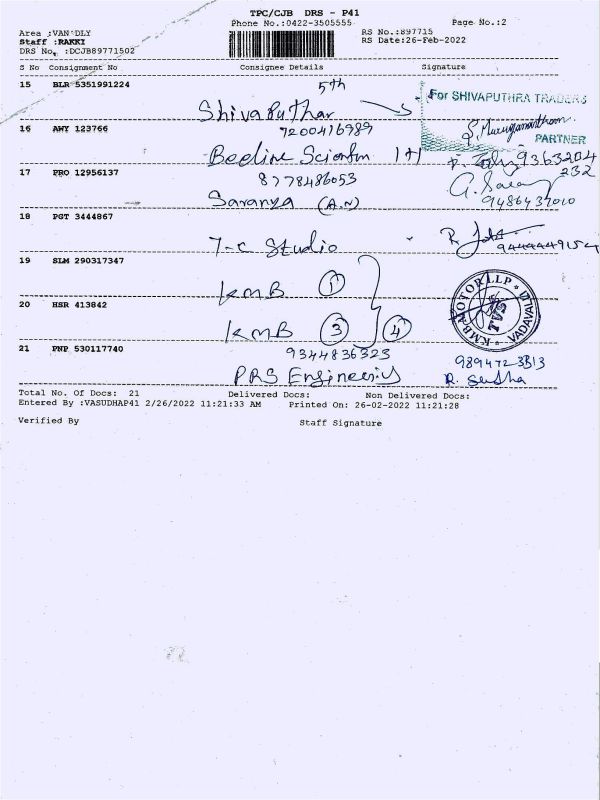 TPC/CJB DRS - P41
Phone No.:0422-3505555
Page No.:2
Area :VAN DLY
Staff :RAKKI
DRS No. :DCJB89771502
RS No.:897715
RS Date:26-Feb-2022
S No Consignment No Consignee Details Signature
15 BLR 5351991224
5th
Shivaputhar
For SHIVAPUTHRA TRADERS
PARTNER
16 AWY 123766
7200416989
Beeline
9363204
232
17 PRO 12956137
8778486053
Saranya (A.N)
9486437010
18 PGT 3444867
T-C Studio
9444449154
19 SLM 290317347
KMB 1
20 HSR 413842
KMB 3 4
KMB MOTOR LLP
TVS
VADAVALLI
21 PNP 530117740
9344836323
PRS Engineering
R. Sudha
Total No. Of Docs: 21 Delivered Docs: Non Delivered Docs:
Entered By :VASUDHAP41 2/26/2022 11:21:33 AM Printed On: 26-02-2022 11:21:28
Verified By Staff Signature